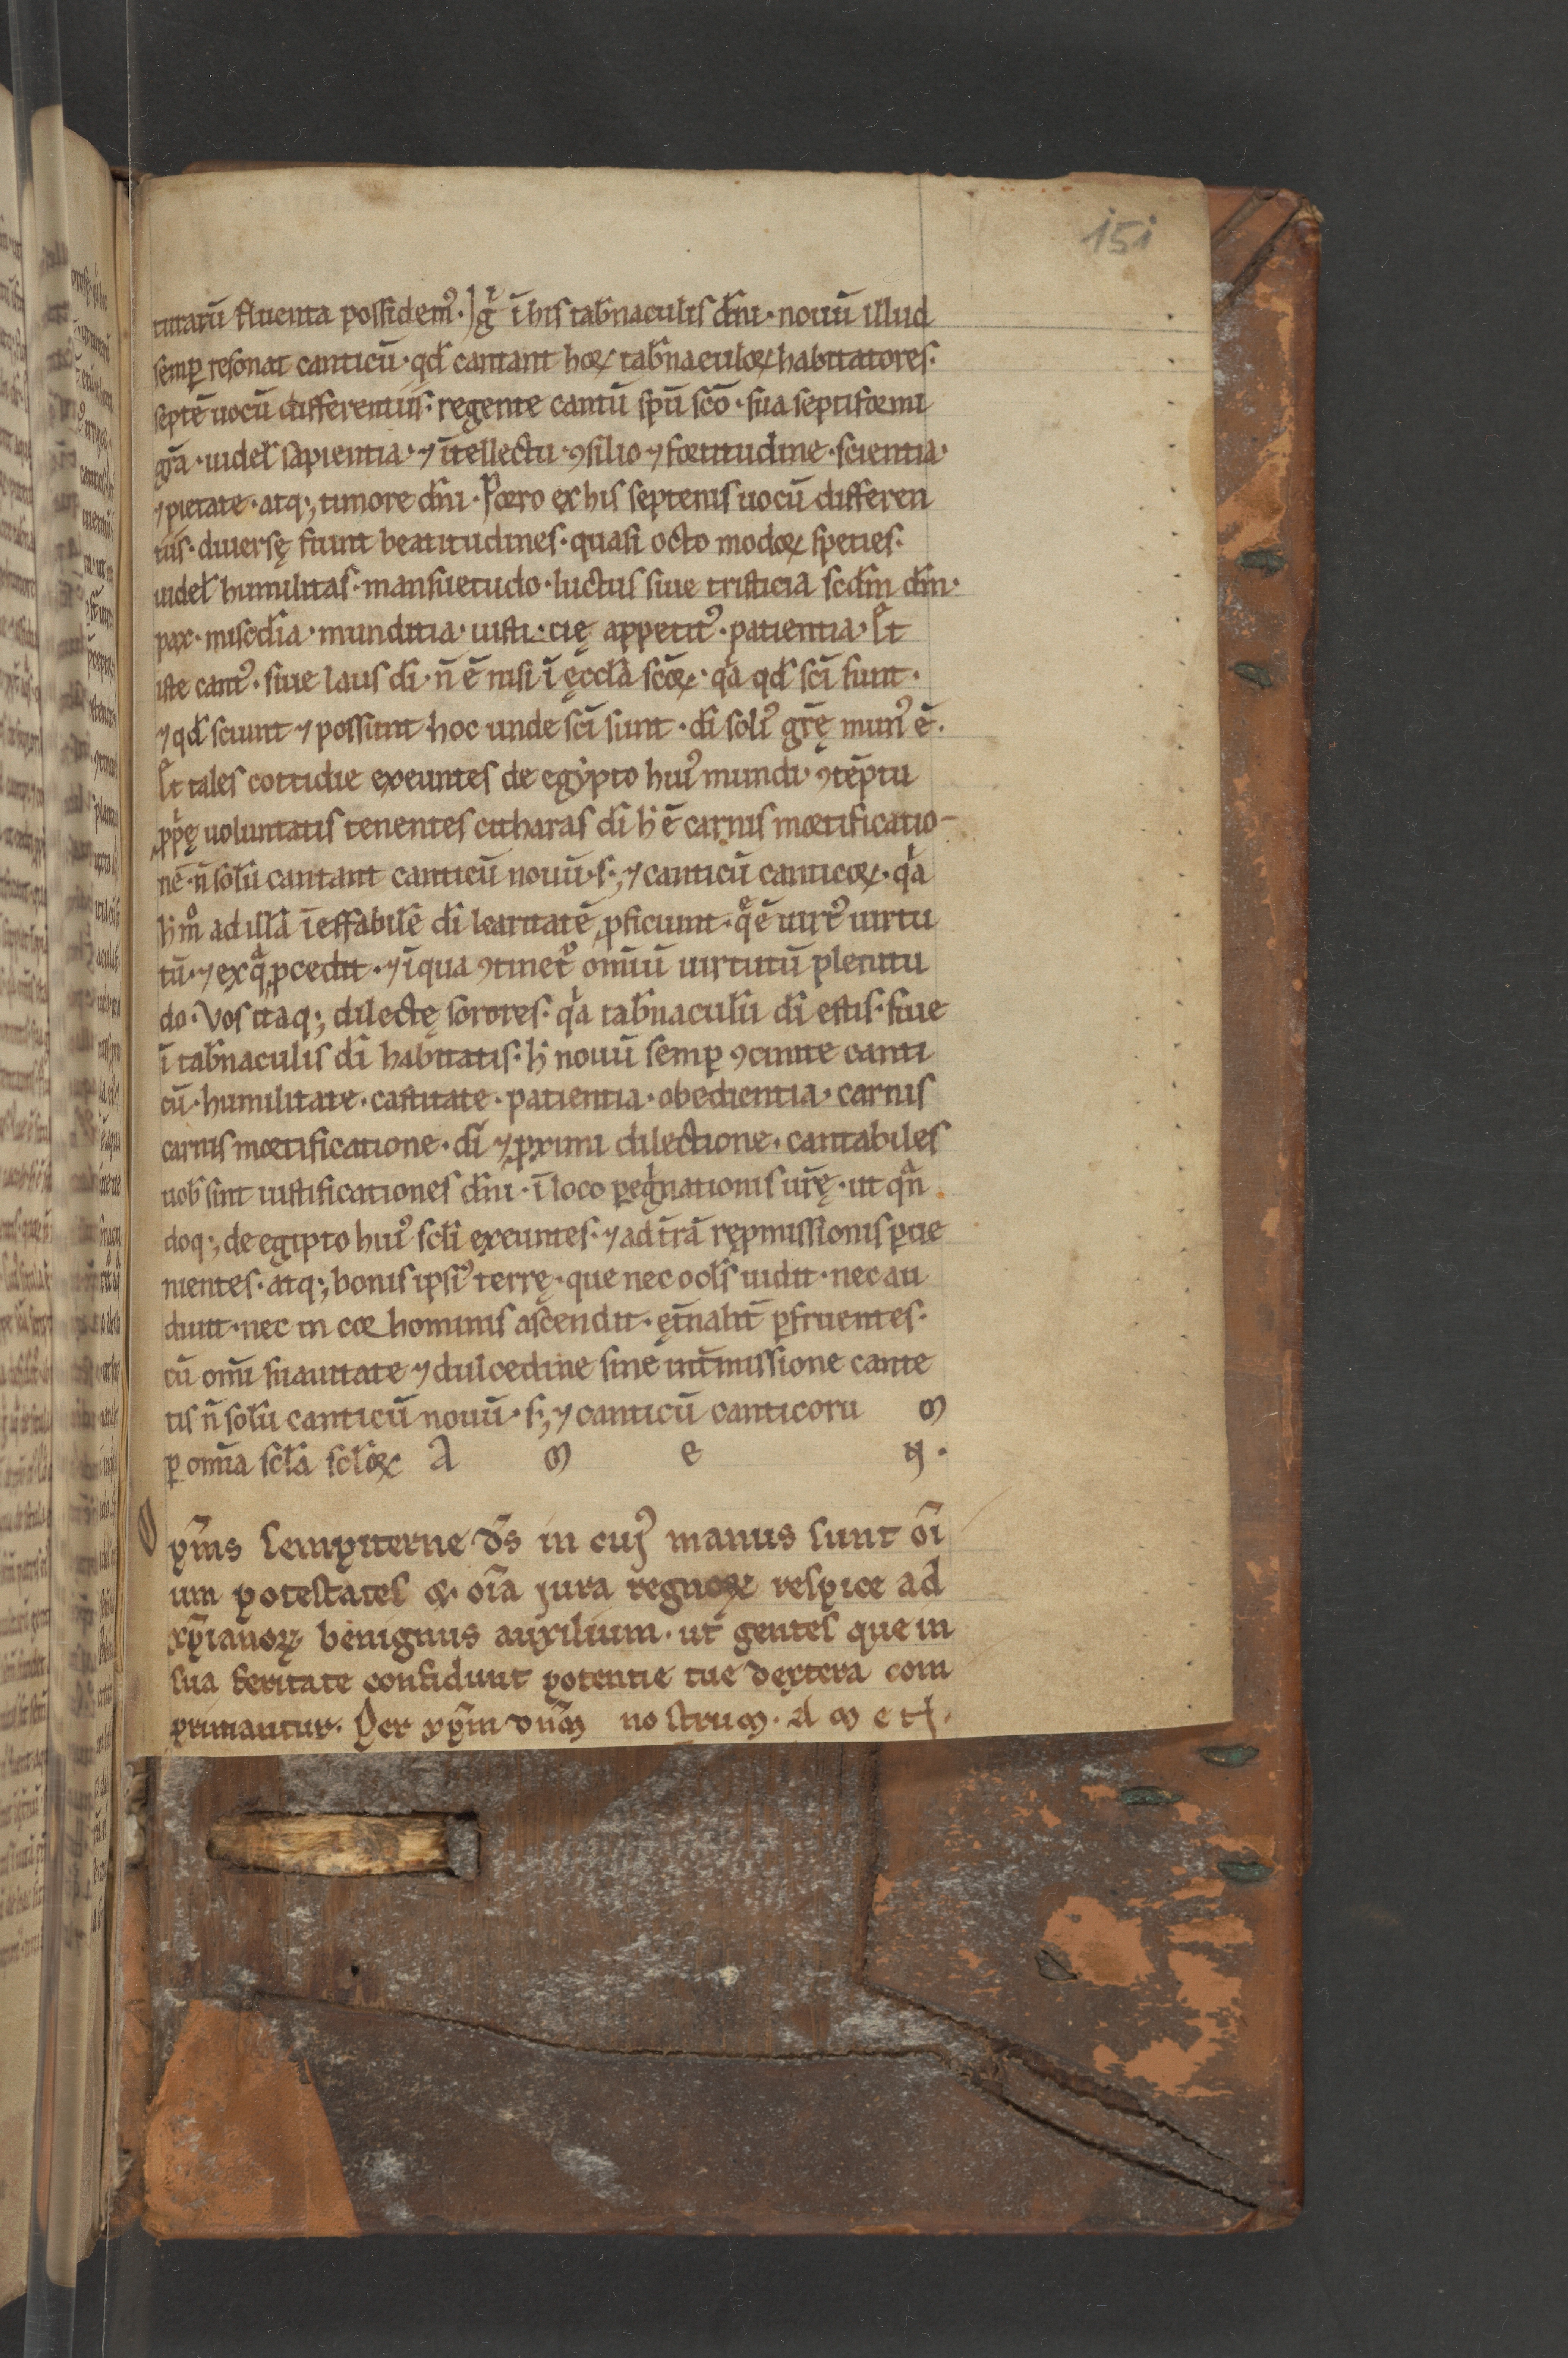 151
turarū fluenta possidem᷒. Igͥ ī his tab̄naculis dn̄i. nouū illud
semp̱ resonat canticū. qd̄ cantant hoꝝ tab̄naculoꝝ habitatores.
septē uocū differentiis. regente cantū spū sc̄o. sua septiformi
gr̄a. uidel̄ sapientia. ⁊ ītellectu. ꝯsilio ⁊ fortitudine. scientia.
⁊ pietate. atq;, timore dn̄i. Porro ex his septenis uocū differen
tiis. diuersę fiunt beatitudines. quasi octo modoꝝ speties.
uidel̄ humilitas. mansuetudo. luctus siue tristicia scdm̄ dm̄.
pax. misc̄dia. munditia. iusti cię appetit᷒. patientia. Sꝫ
iste cant᷒. siue laus dī. n̄ ē nisi ī ęccl̄a sc̄oꝝ. qͥa qd̄ sc̄i sunt.
⁊ qd̄ sciunt ⁊ possunt hoc unde sc̄i sunt. dī soli᷒ gr̄ę mun᷒ ē.
tales cottidie exeuntes de egẏpto hui᷒ mundi. ꝯtēptu
ꝓpͥę uoluntatis tenentes citharas dī h̄ ē carnis mortificatio-
nē. n̄ solū cantant canticū nouū. s;, ⁊ canticū canticoꝝ. qͥa
h̄ mͦ ad illā īeffabilē dī claritatē ꝓficiunt. q̄ ē uirt᷒ uirtu
tū. ⁊ ex qͣ ꝓcedit. ⁊ ī qua ꝯtinet᷒ omiū uirtutū plenitu
do. Vos itaq;, dilectę sorores. qͥa tab̄naculū dī estis. siue
ī tab̄naculis dī habitatis. h̄ nouū semp̱ ꝯcinite canti
cū. humilitate. castitate. patientia. obedientia. carnis
carnis mortificatione. dī ⁊ ꝓximi dilectione. cantabiles
uob̄ sint iustificationes dn̄i. ī loco p̱egͥnationis ur̄ę. ut qn̄
doq;, de egipto hui᷒ scl̄i exeuntes. ⁊ ad t̄rā rep̱missionis p̱ue
nientes. atq;, bonis ipsi᷒ terrę. que nec ocl̄s uidit. nec au
diuit. nec in cor hominis ascendit. ęt̄nalit̄ p̱fruentes.
cū om̄i suauitate ⁊ dulcedine sine int̄missione cante
tis n̄ solū canticū nouū. s;, ⁊ canticū canticoru m
p̱ omīa scl̄a scl̄oꝝ A m e N.
Op̄ms sempiterne d̄s in cuꝰ manus sunt oī
um potestates & oīa jura regnoꝝ respice ad
xp̄ianoꝝ benignus auxilium. ut gentes que in
sua feritate confidunt potentie tue dextera com
primantur. Per xp̄m dn̄m nostrum. A m e n.